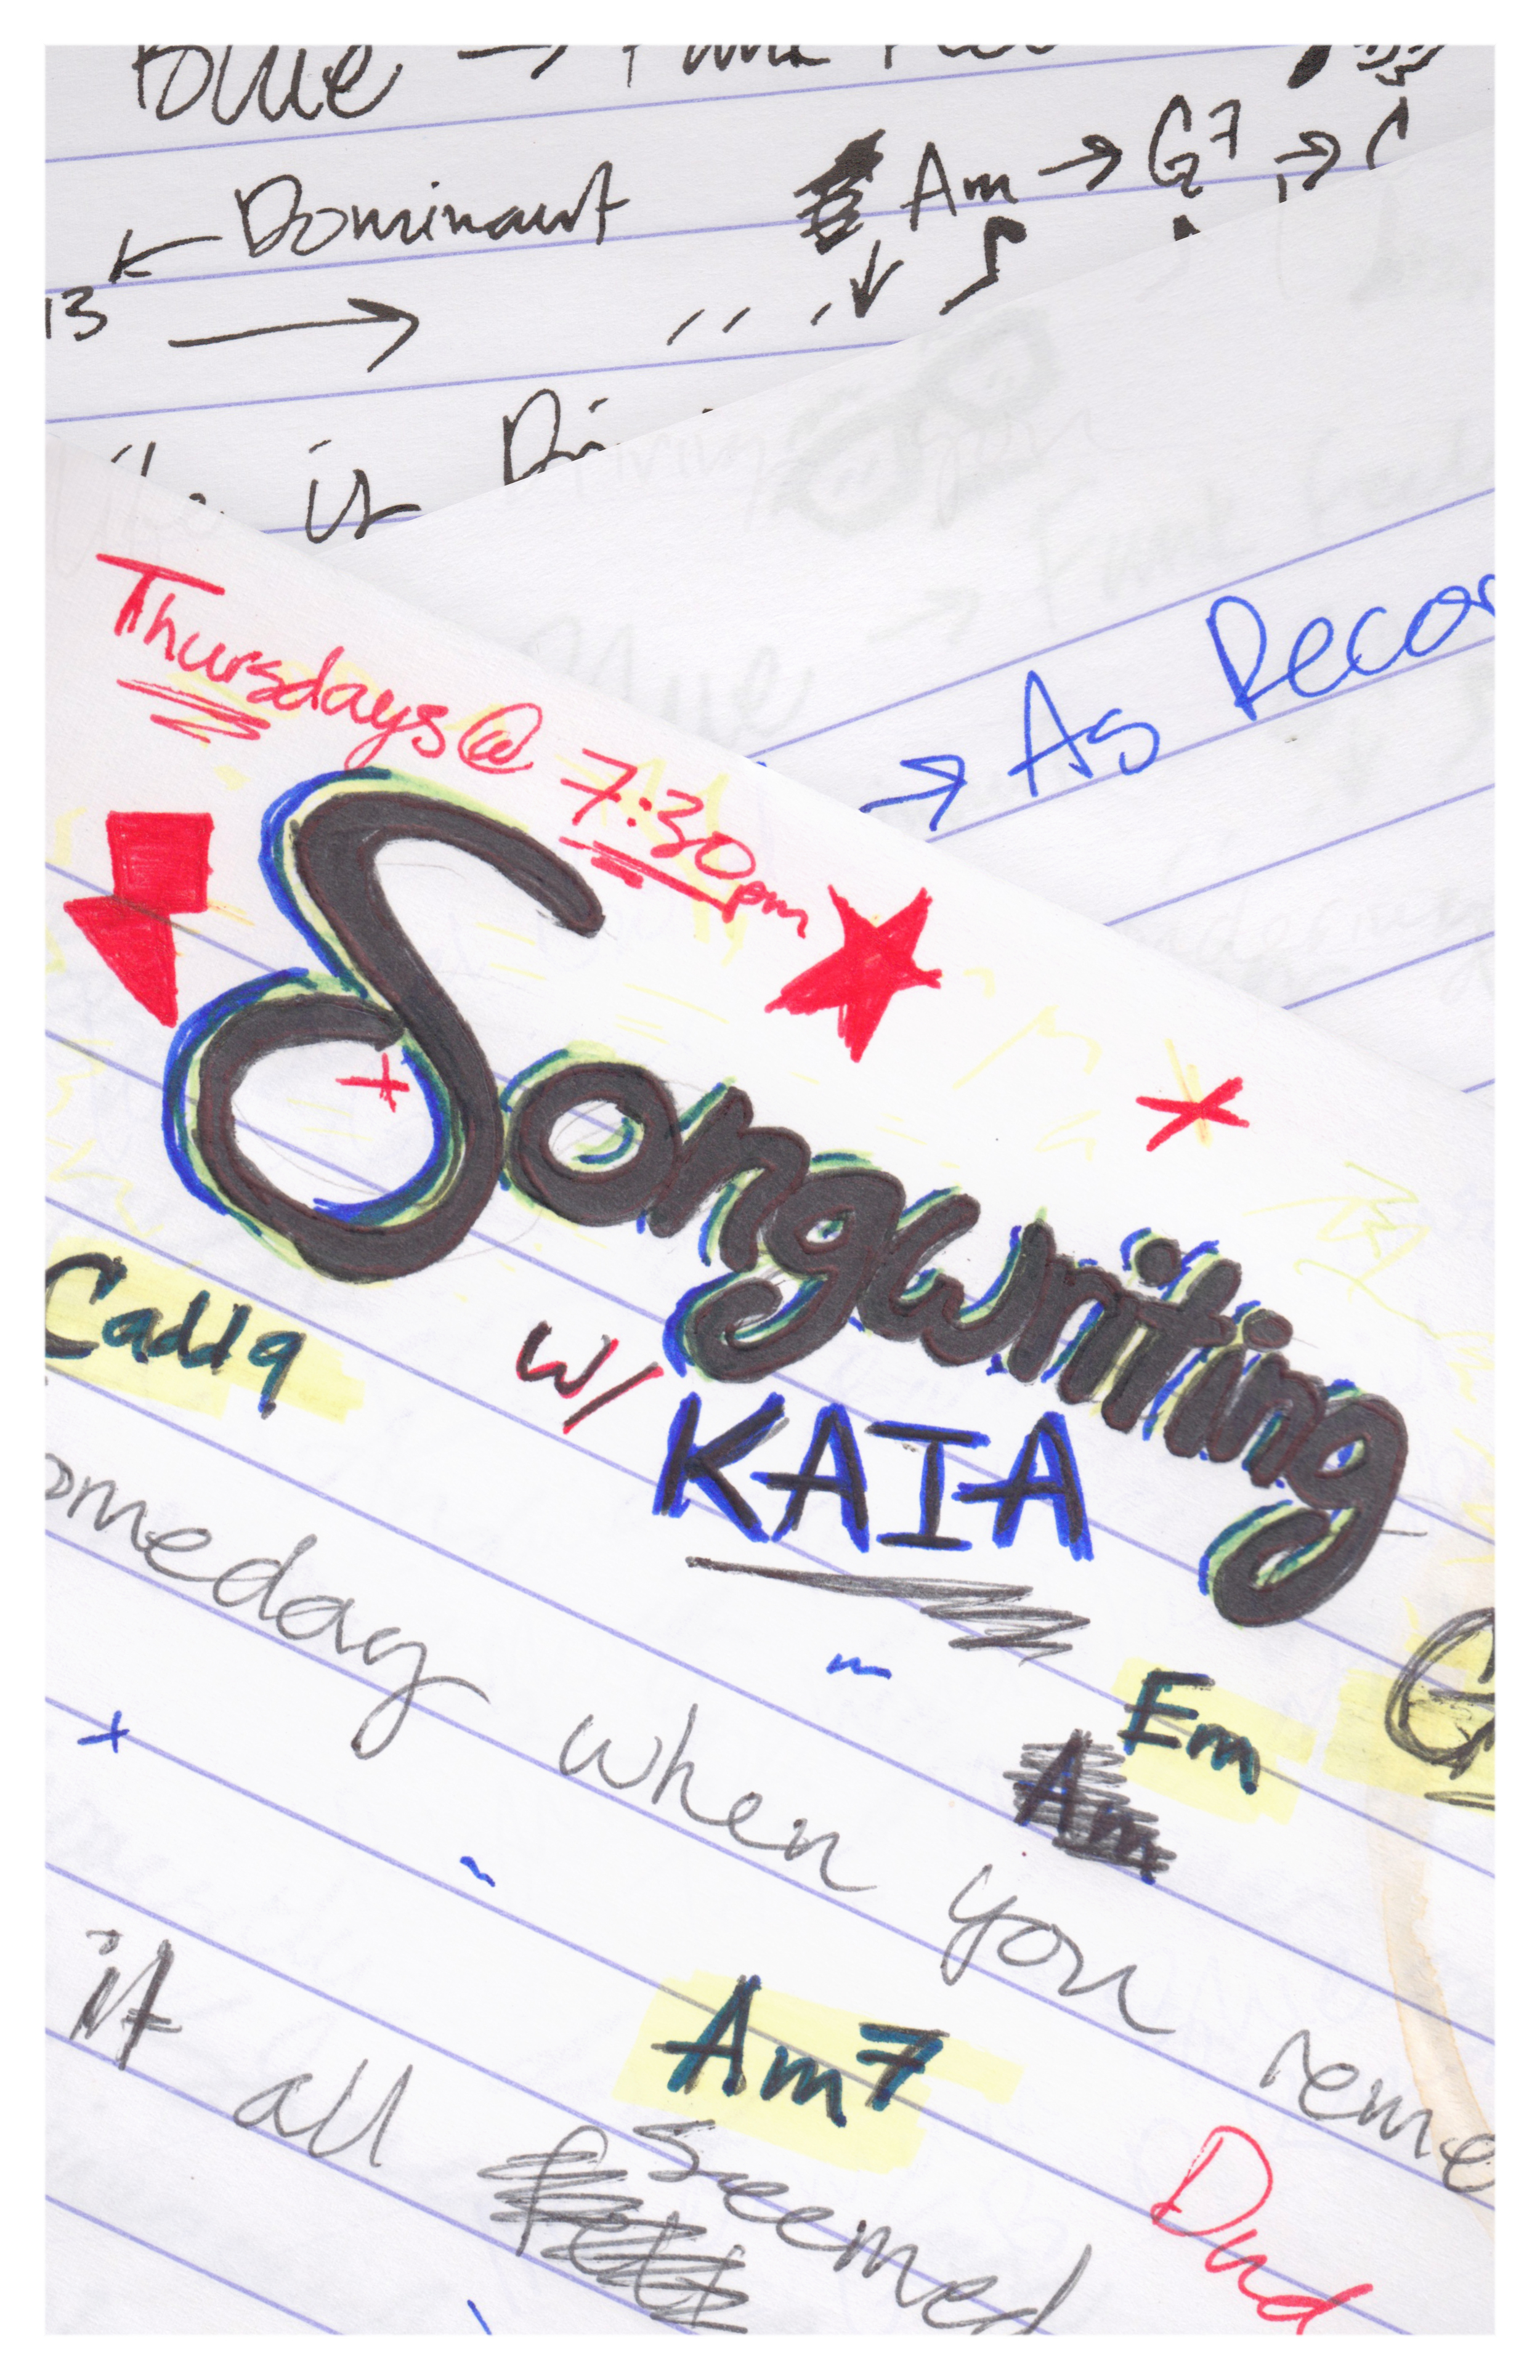 Blue →
← Dominant Am → G7 →
13 →
is
Thursdays @ 7:30pm
→ As Recor
Songwriting
w/ KAIA
Cadd9
omeday when you reme
Em
Am
G
Am7
it all felt seemed
Dud